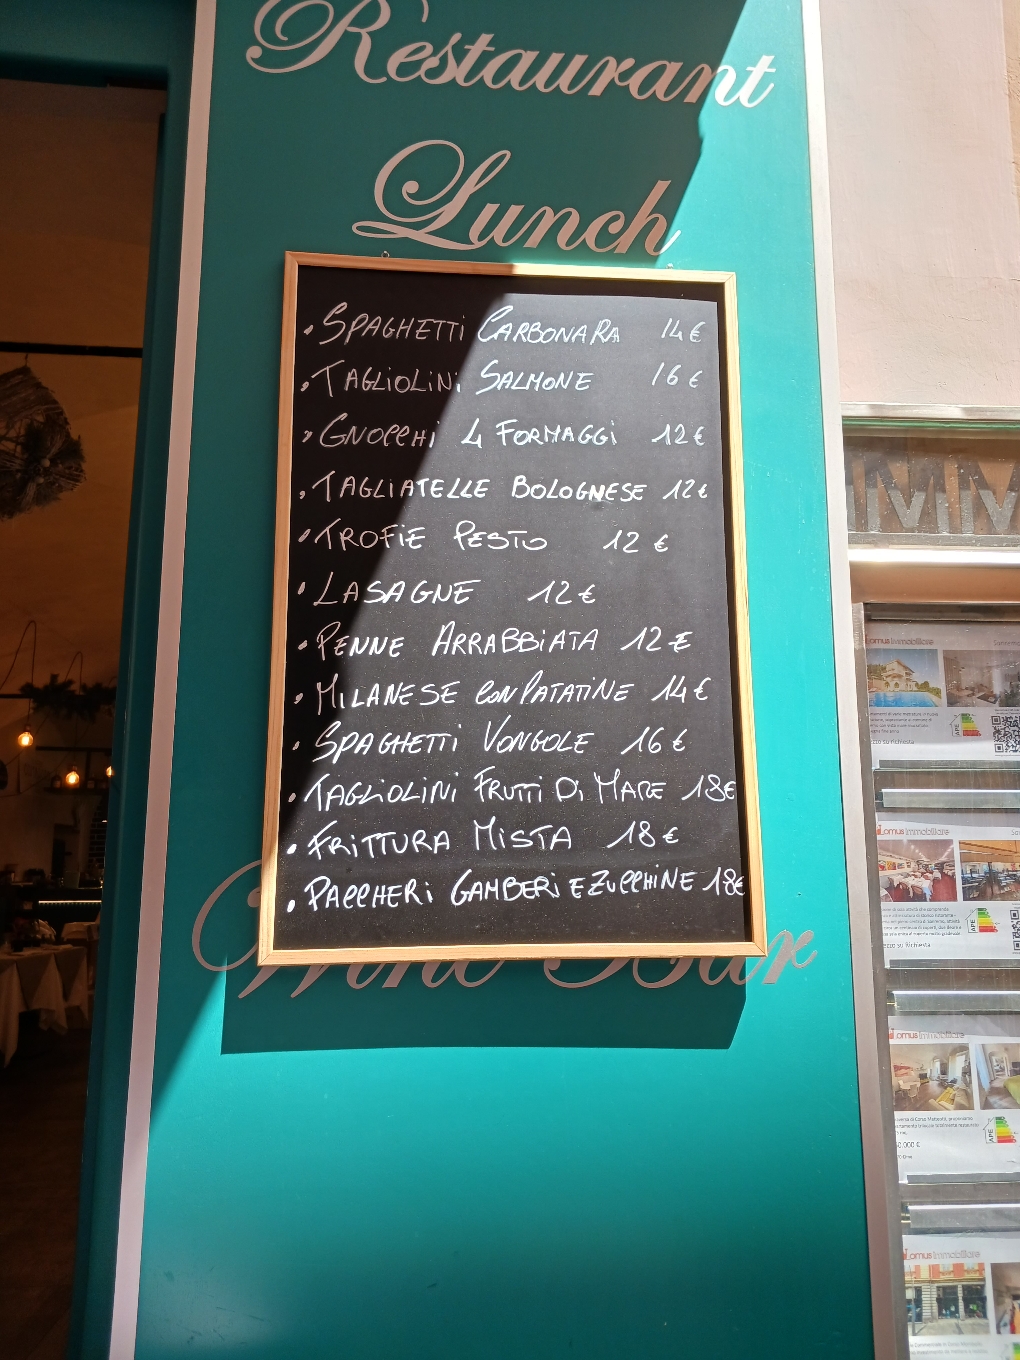 Restaurant
Lunch
SPAGHETTI CARBONARA 14€
TAGLIOLINI SALMONE 16€
GNOCCHI 4 FORMAGGI 12€
TAGLIATELLE BOLOGNESE 12€
TROFIE PESTO 12€
LASAGNE 12€
PENNE ARRABBIATA 12€
MILANESE CON PATATINE 14€
SPAGHETTI VONGOLE 16€
TAGLIOLINI FRUTTI DI MARE 18€
FRITTURA MISTA 18€
PACCHERI GAMBERI E ZUCCHINE 18€
Wine Bar
IMM
omus immobiliare
APE
ezzo su Richiesta
omus immobiliare
APE
ezzo su Richiesta
omus immobiliare
APE
omus immobiliare